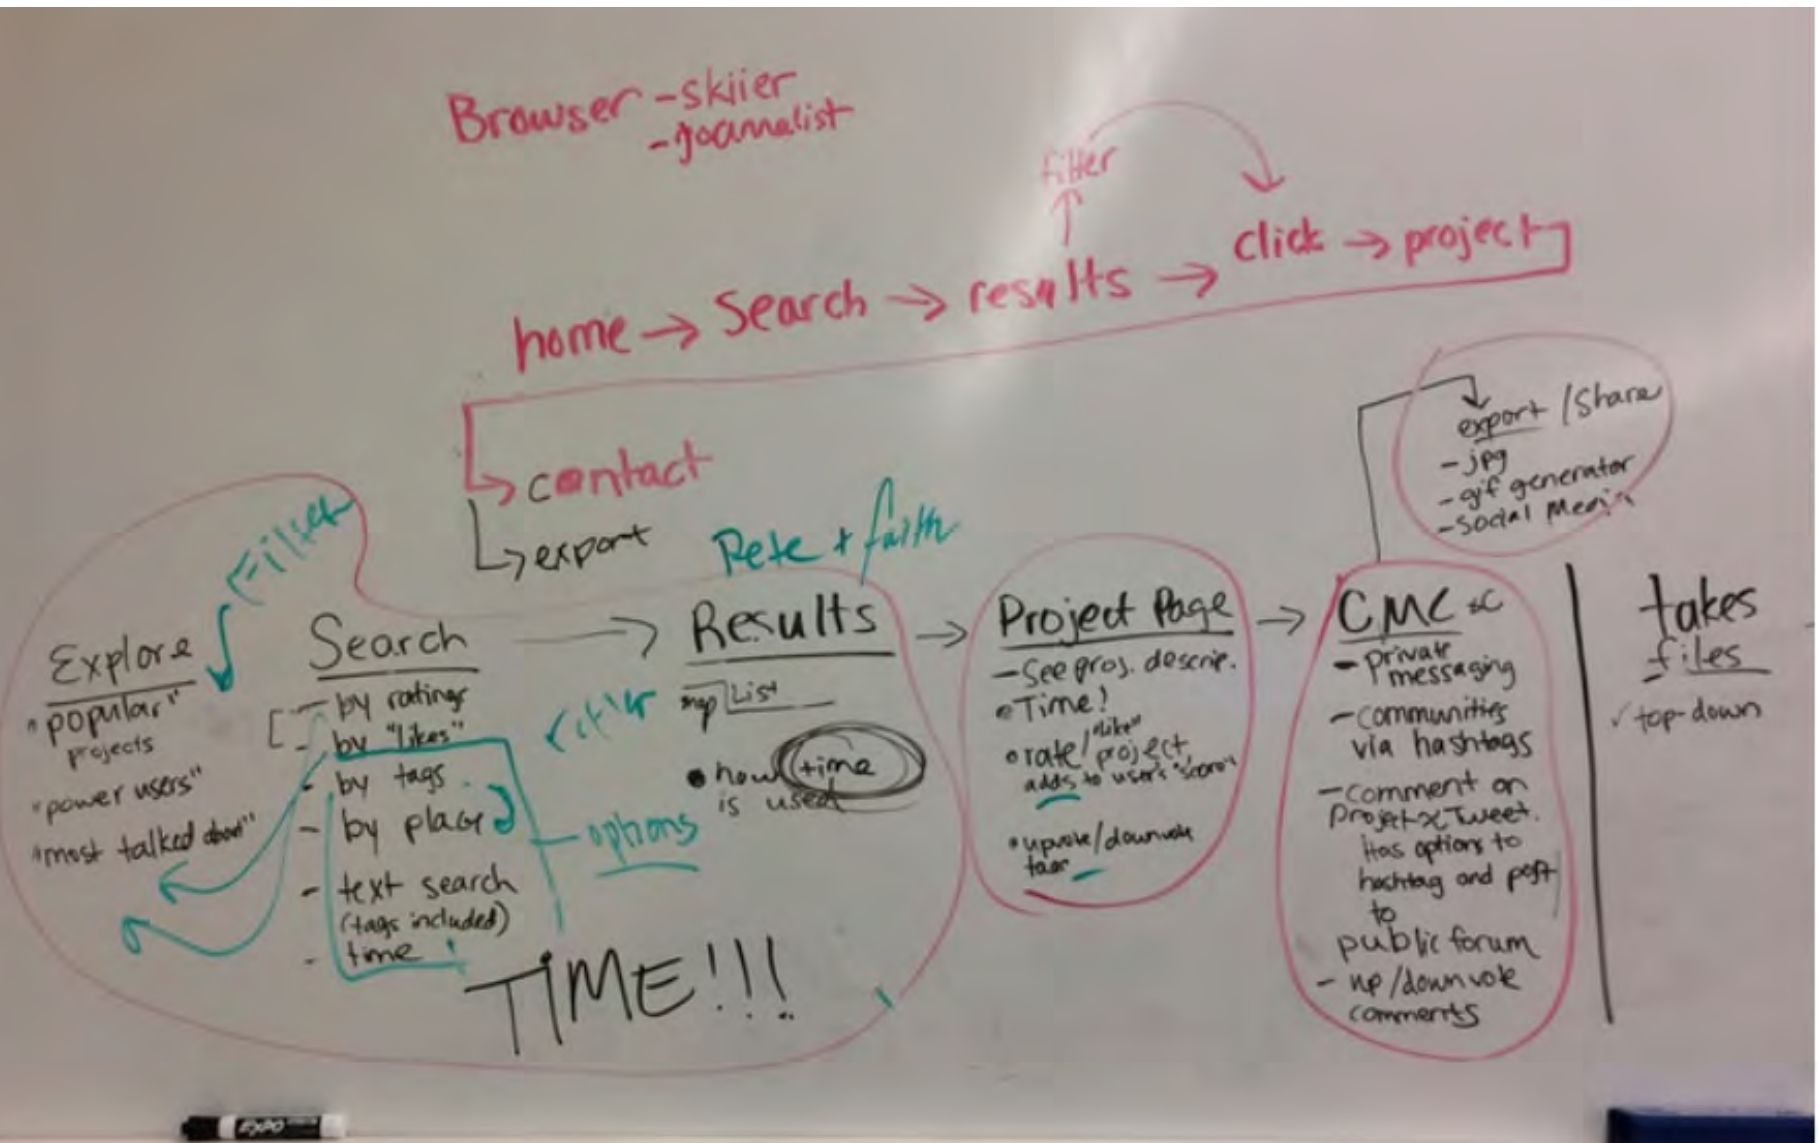 Browser - skiier
- joannalist
filter
home → Search → results → click → project
contact
export
export / Share
- jpg
- gif generator
- social Media
Filter
Pete + faith
Explore
"popular"
projects
"power users"
"most talked about"
Search
- by ratings
- by "likes"
- by tags
- by place
- text search
(tags included)
- time!
options
TIME!!!
→ Results
map | List
• how time
is used
→ Project Page
- See proj. descrip.
• Time!
• rate/"like"
project
adds to user's "score"
• upvote/downvote
→ CMC
- private
messaging
- communities
via hashtags
- comment on
Project Tweet.
Has options to
hashtag and post
to
public forum
- up/downvote
comments
takes
files
✓ top-down
EXPO